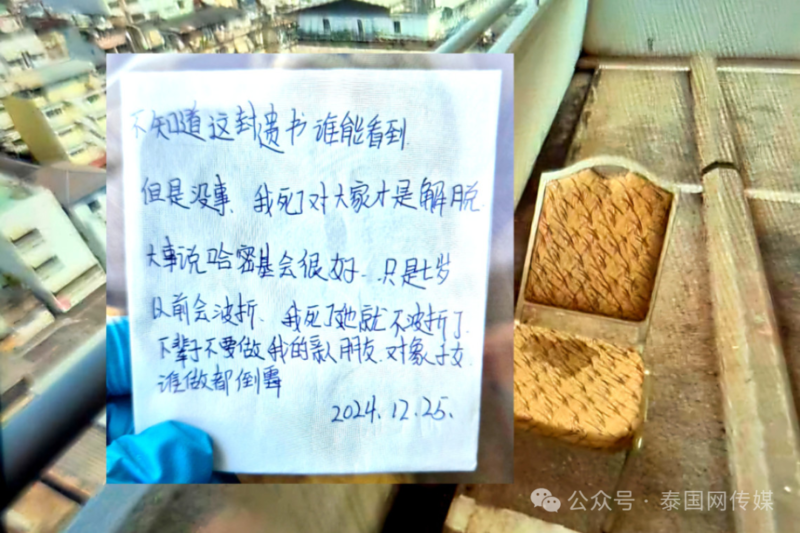 不知道这封遗书谁能看到.
但是没事、我死了对大家才是解脱.
大事说哈密基会很好、只是七岁
以前会波折、我死了她就不波折了
下辈子不要做我的亲人朋友.对象子女
谁做都倒霉
2024.12.25.
公众号·泰国网传媒